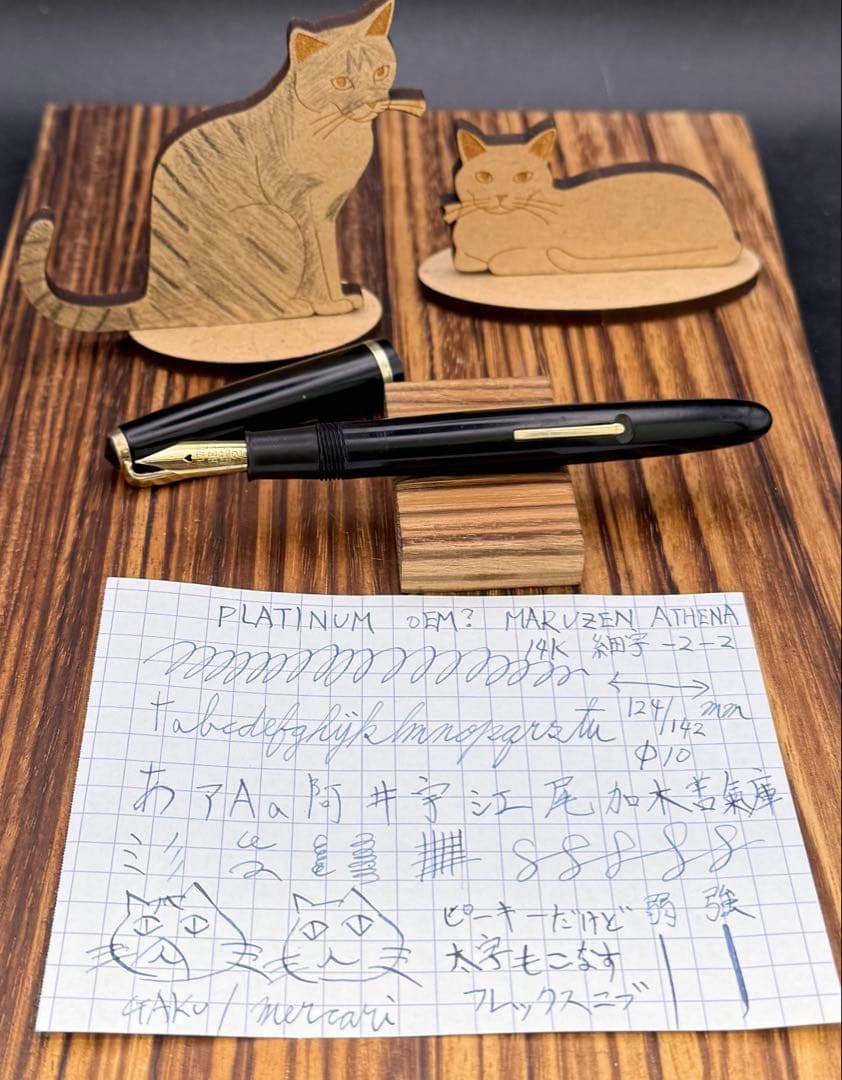 PLATINUM OEM? MARUZEN ATHENA
14K 細字 -2-2
tabcdefghijklmnopqrstu
124/142 mm
Φ10
あ ア A a 阿 井 宇 江 尾 加 木 善 氣 庫
ピーキーだけど 弱 強
太字もこなす
フレックスニブ
GAKU / mercari